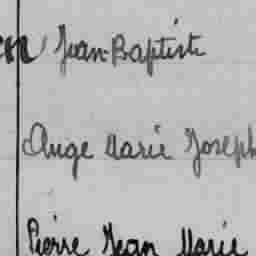 Jean-Baptiste
Ange Marie Joseph
Pierre Jean Marie